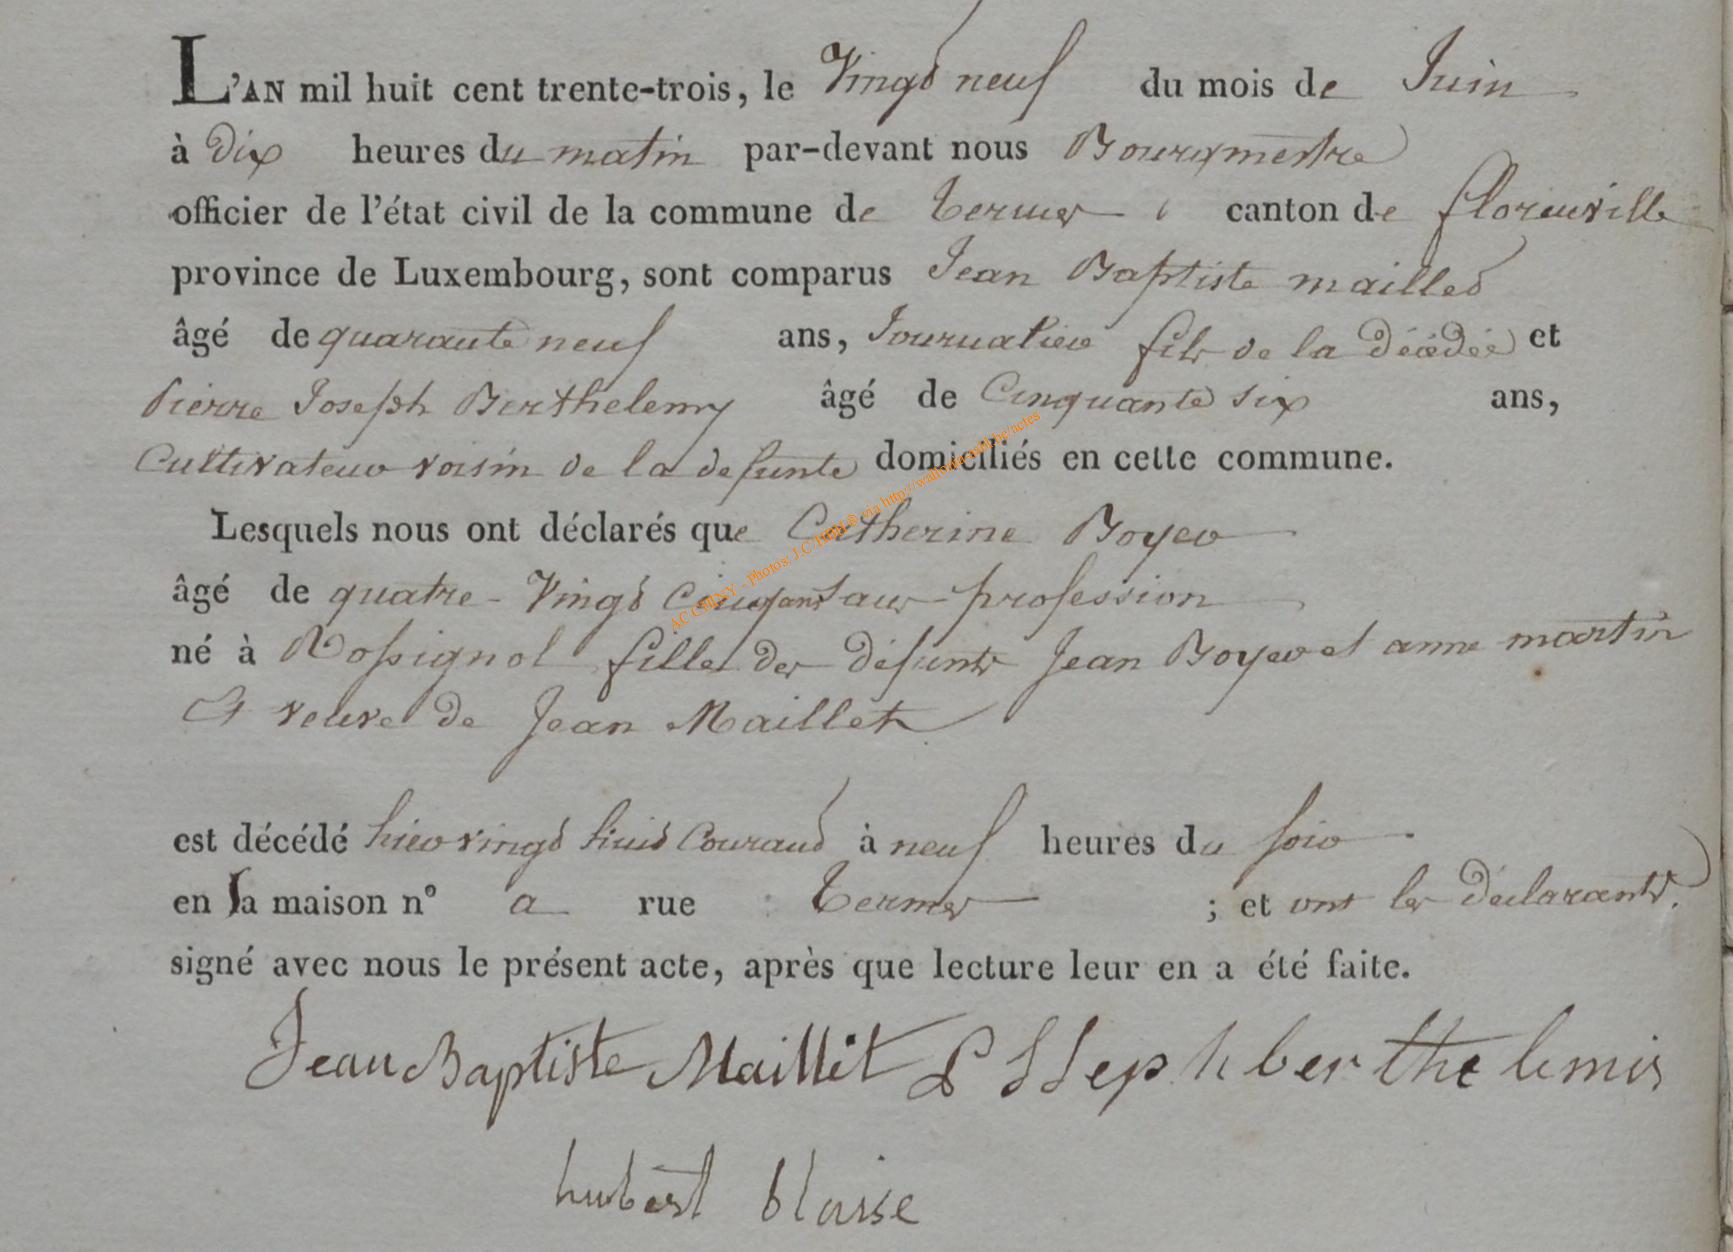 L'AN mil huit cent trente-trois, le Vingt neuf du mois de Juin
à Dix heures du matin par-devant nous Bourgmestre
officier de l'état civil de la commune de termes canton de florenville
province de Luxembourg, sont comparus Jean Baptiste mailled
âgé de quarante neuf ans, Journalier fils de la décédée et
Pierre Joseph Berthelemy âgé de Cinquante six ans,
Cultivateur voisin de la defunte domiciliés en cette commune.
Lesquels nous ont déclarés que Catherine Boyer
âgé de quatre-Vingt ans profession
né à Rossignol fille des défunts Jean Boyer et anne martin
Et veuve de Jean Maillet
est décédé hier vingt huit Courant à neuf heures du soir
en sa maison n° a rue termes ; et ont les déclarants
signé avec nous le présent acte, après que lecture leur en a été faite.
Jean Baptiste Maillet berthelemis
hubert blaise
AC CHINY - Photos: J.C. via http://wallonia-asbl.be/actes